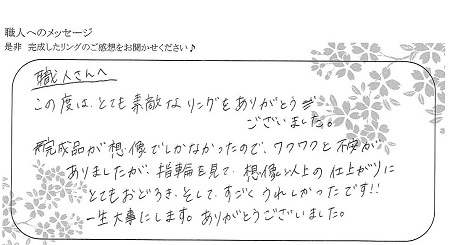 職人へのメッセージ
是非 完成したリングのご感想をお聞かせください♪
職人さんへ
この度は、とても素敵なリングをありがとう
ございました。
完成品が想像でしかなかったので、ワクワクと不安が
ありましたが、指輪を見て、想像以上の仕上がりに
とてもおどろき、そして、すごくうれしかったです!!
一生大事にします。ありがとうございました。